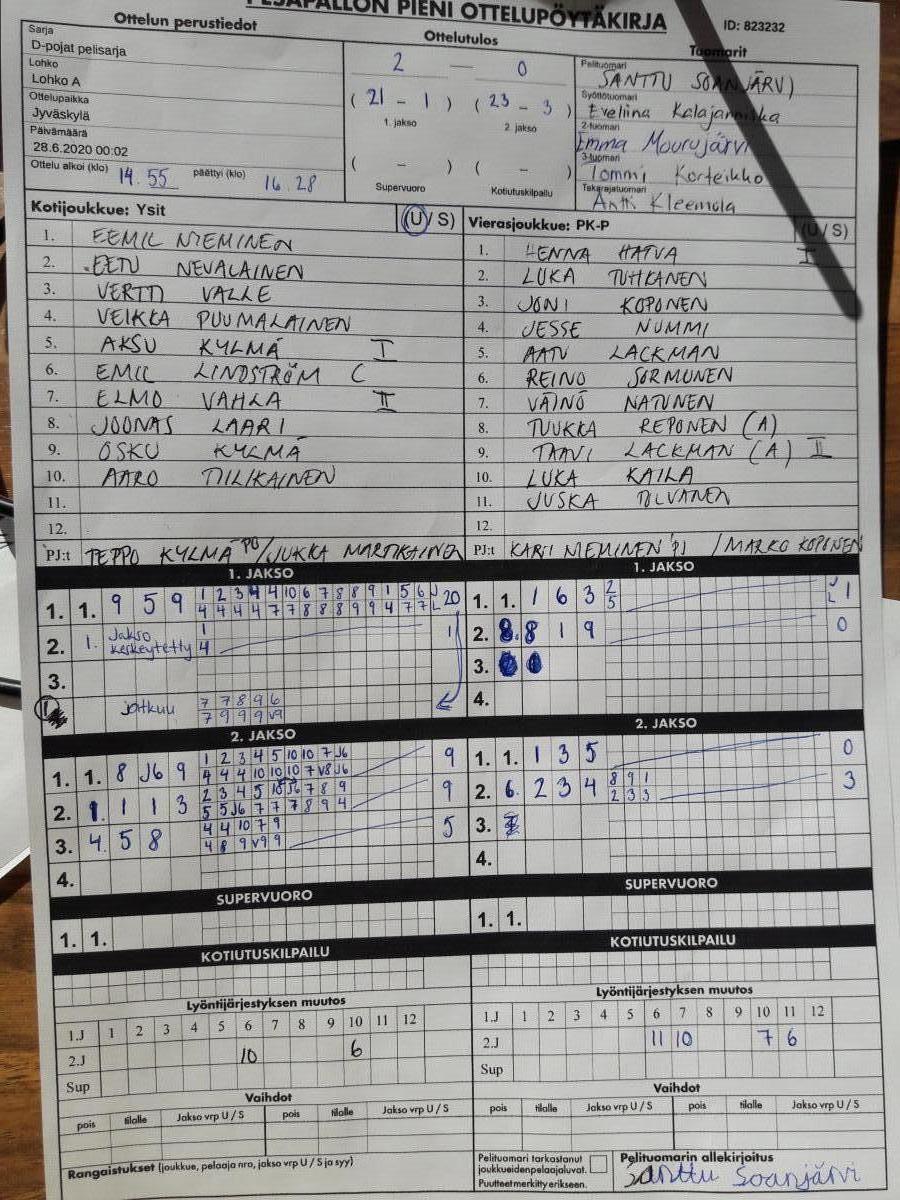 PESÄPALLON PIENI OTTELUPÖYTÄKIRJA
ID: 823232
Ottelun perustiedot
Sarja
D-pojat pelisarja
Lohko
Lohko A
Ottelupaikka
Jyväskylä
Päivämäärä
28.6.2020 00:02
Ottelu alkoi (klo) 14.55 päättyi (klo) 16.28
Ottelutulos
2 — 0
( 21 - 1 ) ( 23 - 3 )
1. jakso 2. jakso
( - ) ( - )
Supervuoro Kotiutuskilpailu
Tuomarit
Pelituomari
SANTTU SOANJÄRVI
Syöttötuomari
Eveliina
2-tuomari
Emma Mourujärvi
3-tuomari
Tommi Korteikko
Takarajatuomari
Antti Kleemola
Kotijoukkue: Ysit (U / S)
1. EEMIL NIEMINEN
2. EETU NEVALAINEN
3. VERTTI VALLE
4. VEIKKA PUUMALAINEN
5. AKSU KYLMÄ I
6. EMIL LINDSTRÖM C
7. ELMO VAHLA II
8. JOONAS LAARI
9. OSKU KYLMÄ
10. AARO TIILIKAINEN
11.
12.
PJ:t TEPPO KYLMÄ PJ / JUKKA MARTIKAINEN
Vierasjoukkue: PK-P (U / S)
1. HENNA HATVA I
2. LUKA TUHKANEN
3. JONI KOPONEN
4. JESSE NUMMI
5. AATU LACKMAN
6. REINO SORMUNEN
7. VÄINÖ NATUNEN
8. TUUKKA REPONEN (A)
9. TAAVI LACKMAN (A) II
10. LUKA KAILA
11. JUSKA TOLVANEN
12.
PJ:t KARI NIEMINEN PJ / MARKO KOPONEN
1. JAKSO
1. 1. 9 5 9 1 2 3 4 4 10 6 7 8 8 9 1 5 6 J 20
4 4 4 4 7 7 8 8 8 9 9 4 7 7 L
2. 1. Jakso keskeytetty 1 1
4
3.
jatkuu 7 7 8 9 6
7 9 9 9 V9
1. JAKSO
1. 1. 1 6 3 2 J 1
5 L
2. 8. 8 1 9 0
3.
4.
2. JAKSO
1. 1. 8 J6 9 1 2 3 4 5 10 10 7 J6 9
4 4 4 10 10 10 7 V8 J6
2. 1. 1 1 3 2 3 4 5 10 J6 7 8 9 9
5 5 J6 7 7 7 8 9 4
3. 4. 5 8 4 4 10 7 9 5
4 8 9 V9 9
4.
2. JAKSO
1. 1. 1 3 5 0
2. 6. 2 3 4 8 9 1 3
2 3 3
3.
4.
SUPERVUORO
1. 1.
SUPERVUORO
1. 1.
KOTIUTUSKILPAILU
KOTIUTUSKILPAILU
Lyöntijärjestyksen muutos
1.J 1 2 3 4 5 6 7 8 9 10 11 12
2.J 10 6
Sup
Vaihdot
pois tilalle Jakso vrp U / S pois tilalle Jakso vrp U / S
Lyöntijärjestyksen muutos
1.J 1 2 3 4 5 6 7 8 9 10 11 12
2.J 11 10 7 6
Sup
Vaihdot
pois tilalle Jakso vrp U / S pois tilalle Jakso vrp U / S
Rangaistukset (joukkue, pelaaja nro, jakso vrp U / S ja syy)
Pelituomari tarkastanut
joukkueidenpelaajaluvat.
Puutteet merkitty erikseen.
Pelituomarin allekirjoitus
Santtu Soanjärvi